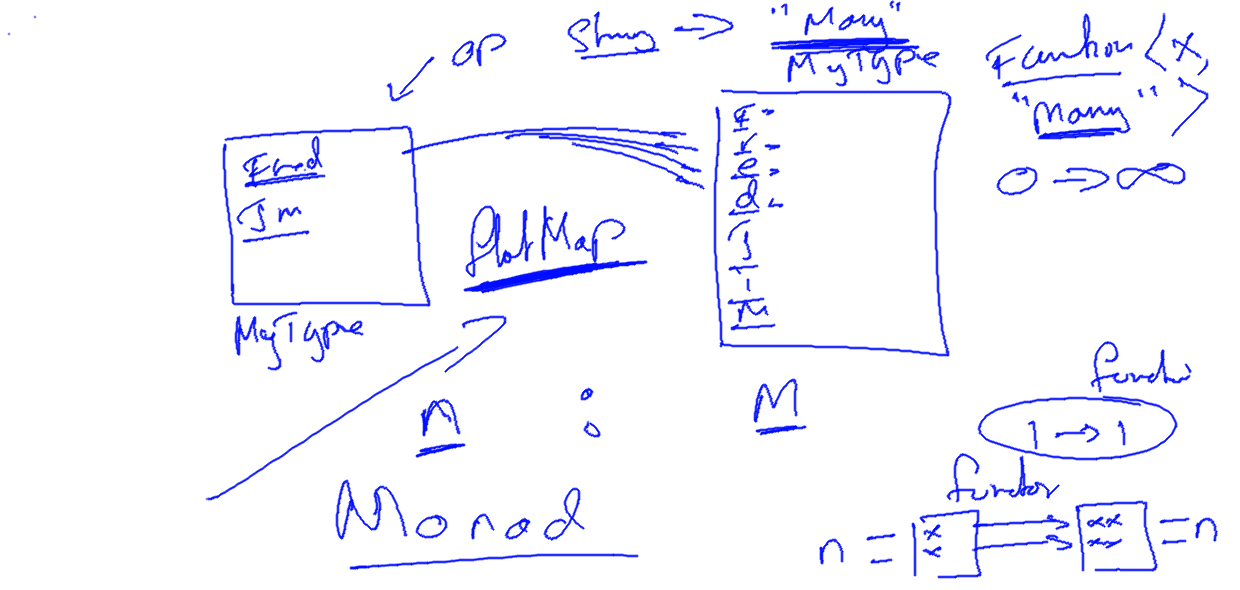 OP String → "Many"
MyType
Function <X,
"Many" >
0 → ∞
Fred
Jim
MyType
flatMap
F"
r"
e"
d"
J
I
M
n : M
Monad
functi
1 → 1
functor
n = x x → xx xx = n